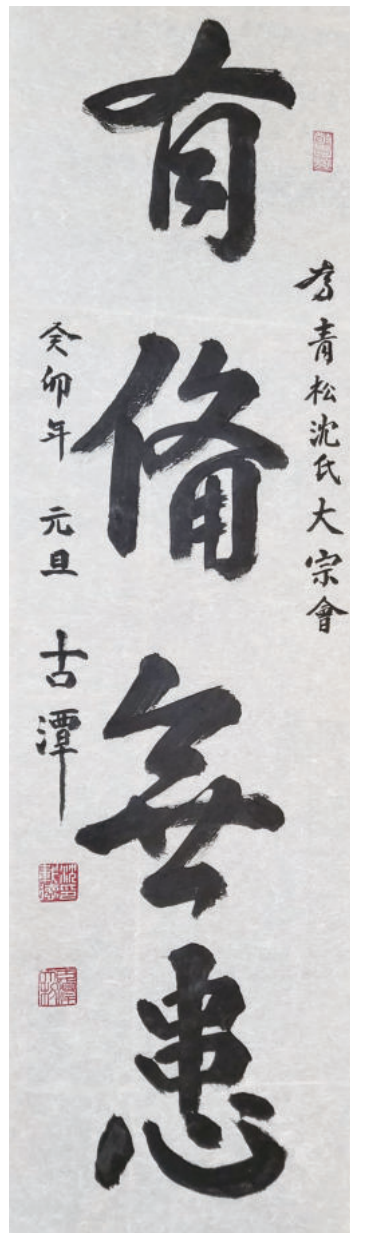 為青松沈氏大宗會
有備無患
癸卯年 元旦 古潭